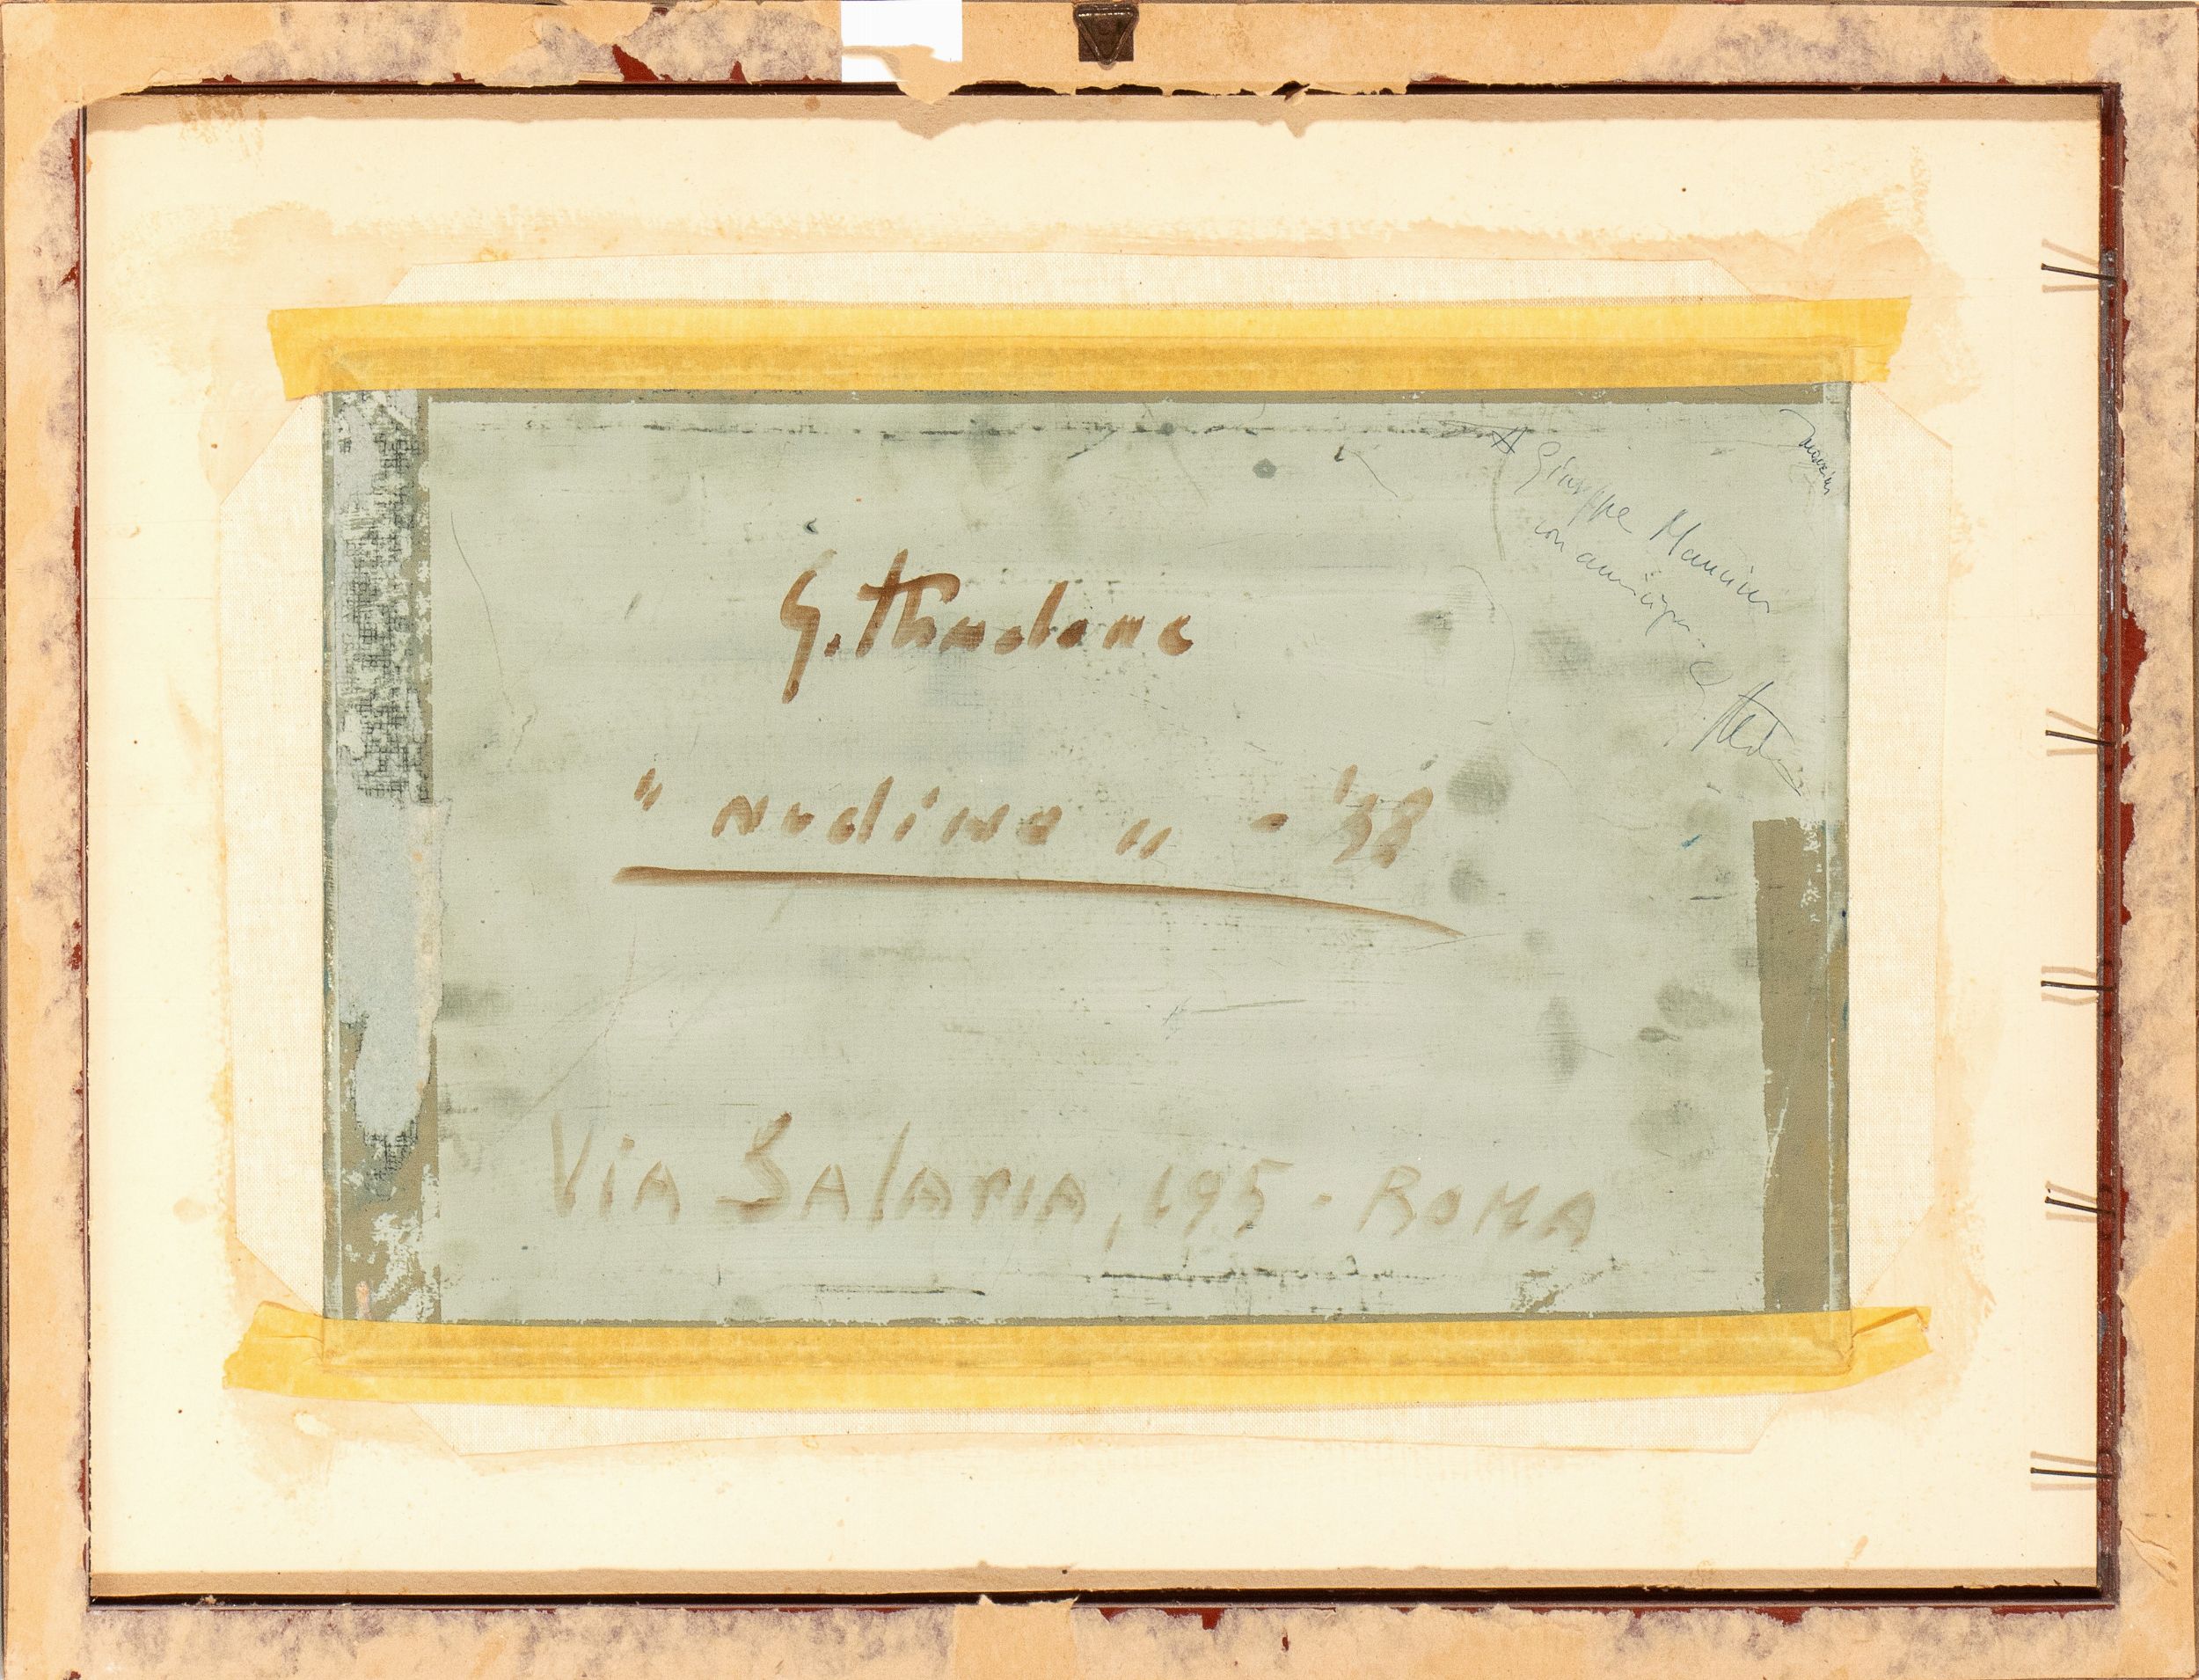 G. Stradone
"Nudino" - '38
Via Salaria, 195 - ROMA
A Giuseppe Mancini
con amicizia
G. Stradone